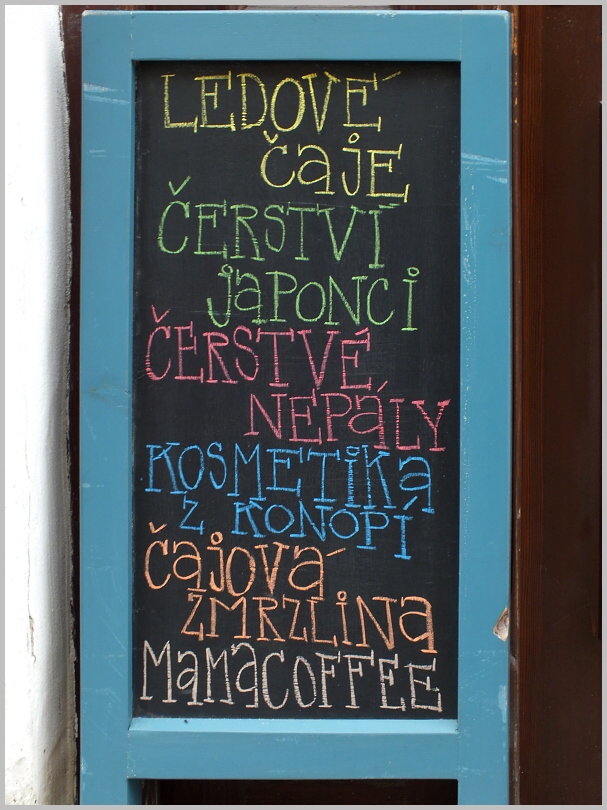 LEDOVÉ
čajE
ČERSTVÍ
jaPONCi
ČERSTVÉ
NEPáLY
KOSMETiKa
Z KONOPÍ
čajová
ZMRZLiNa
MaMaCOFFEE